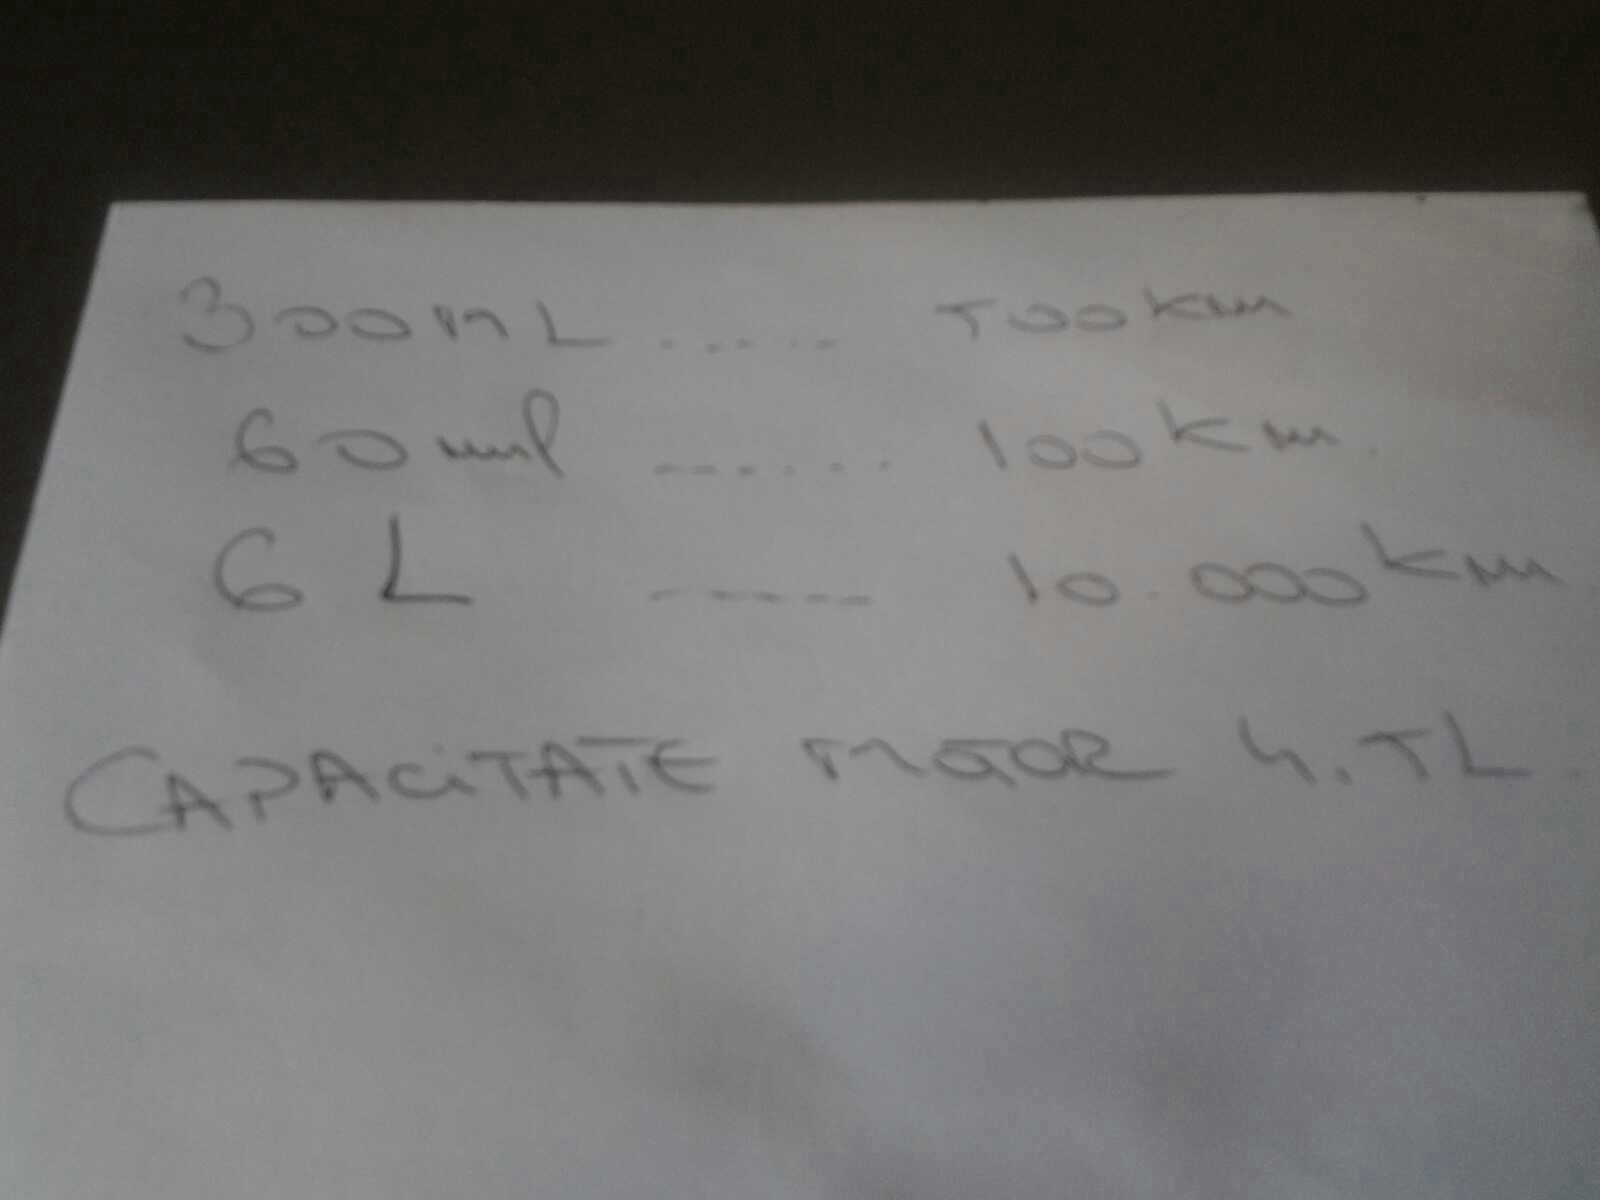 300ML ..... 500km
60ml ....... 100km.
6L ------ 10.000km
CAPACiTATE MOTOR 4.5L.